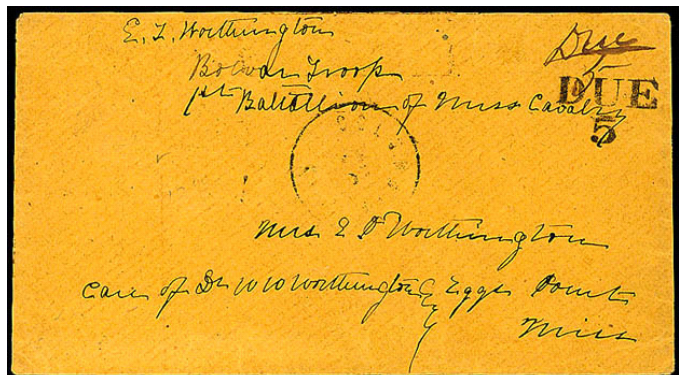 E. T. Worthington
Due
Bolivar Troop
5
DUE
1st Battallion of Miss Cavalry
5
Mrs E T Worthington
Care of Dr W W Worthington Eggs Point
Miss